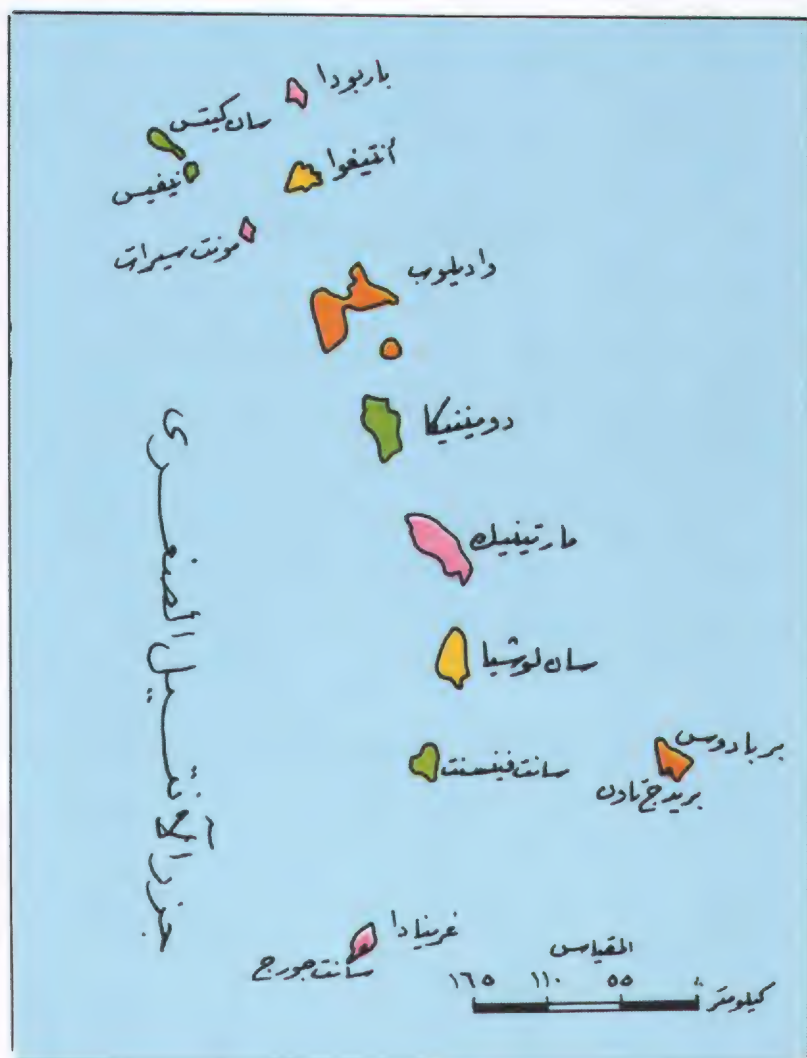 باربودا
سان كيتس
أنتيغوا
نيفيس
مونت سيرات
واديلوب
دومينيكا
مارتينيك
سان لوشيا
سانت فينسنت
بربادوس
بريدج تاون
غرينادا
سانت جورج
جزر الآنتيل الصغرى
المقياس
١٦٥ ١١٠ ٥٥ ٠
كيلومتر